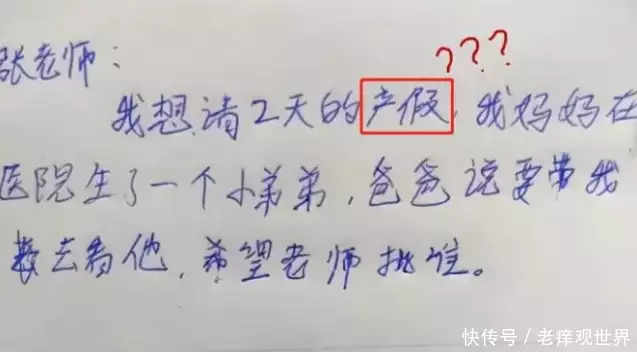 张老师：
???
我想请2天的产假，我妈妈在
医院生了一个小弟弟，爸爸说要带我
去看他，希望老师批准。
快传号／老痒观世界